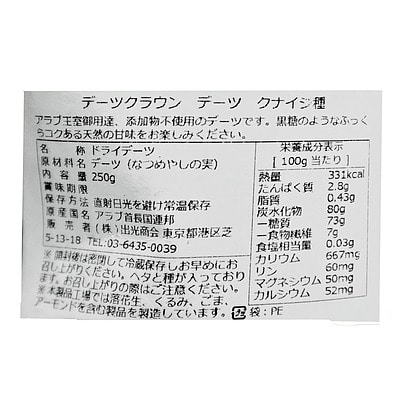 デーツクラウン デーツ クナイジ種
アラブ王室御用達、添加物不使用のデーツです。黒糖のようなふっく
らコクある天然の甘味をお楽しみください。
名 称 ドライデーツ
原材料名 デーツ(なつめやしの実)
内 容 量 250g
賞味期限
保存方法 直射日光を避け常温保存
原産国名 アラブ首長国連邦
販 売 者 (株)出光商会 東京都港区芝
5-13-18 TEL:03-6435-0039
※開封後は密閉して冷蔵保存しお早めにお
召し上がりください。ヘタと種が入っており
ます。お召し上がりの際はご注意ください。
※本製品工場では落花生、くるみ、ごま、
アーモンドを含む製品を製造しています。
栄養成分表示
[100g当たり]
熱量 331kcal
たんぱく質 2.8g
脂質 0.43g
炭水化物 80g
-糖質 73g
-食物繊維 7g
食塩相当量 0.03g
カリウム 667mg
リン 60mg
マグネシウム 50mg
カルシウム 52mg
プラ 袋:PE